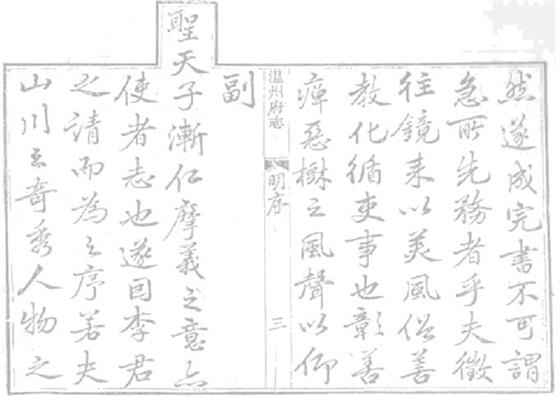 然遂成完書不可謂
急所先務者乎夫徵
往鏡来以美風俗善
教化循吏事也彰善
癉惡樹之風聲以仰
温州府志
明序
三
副
聖天子漸仁摩義之意亦
使者志也遂因李君
之請而為之序若夫
山川之奇秀人物之